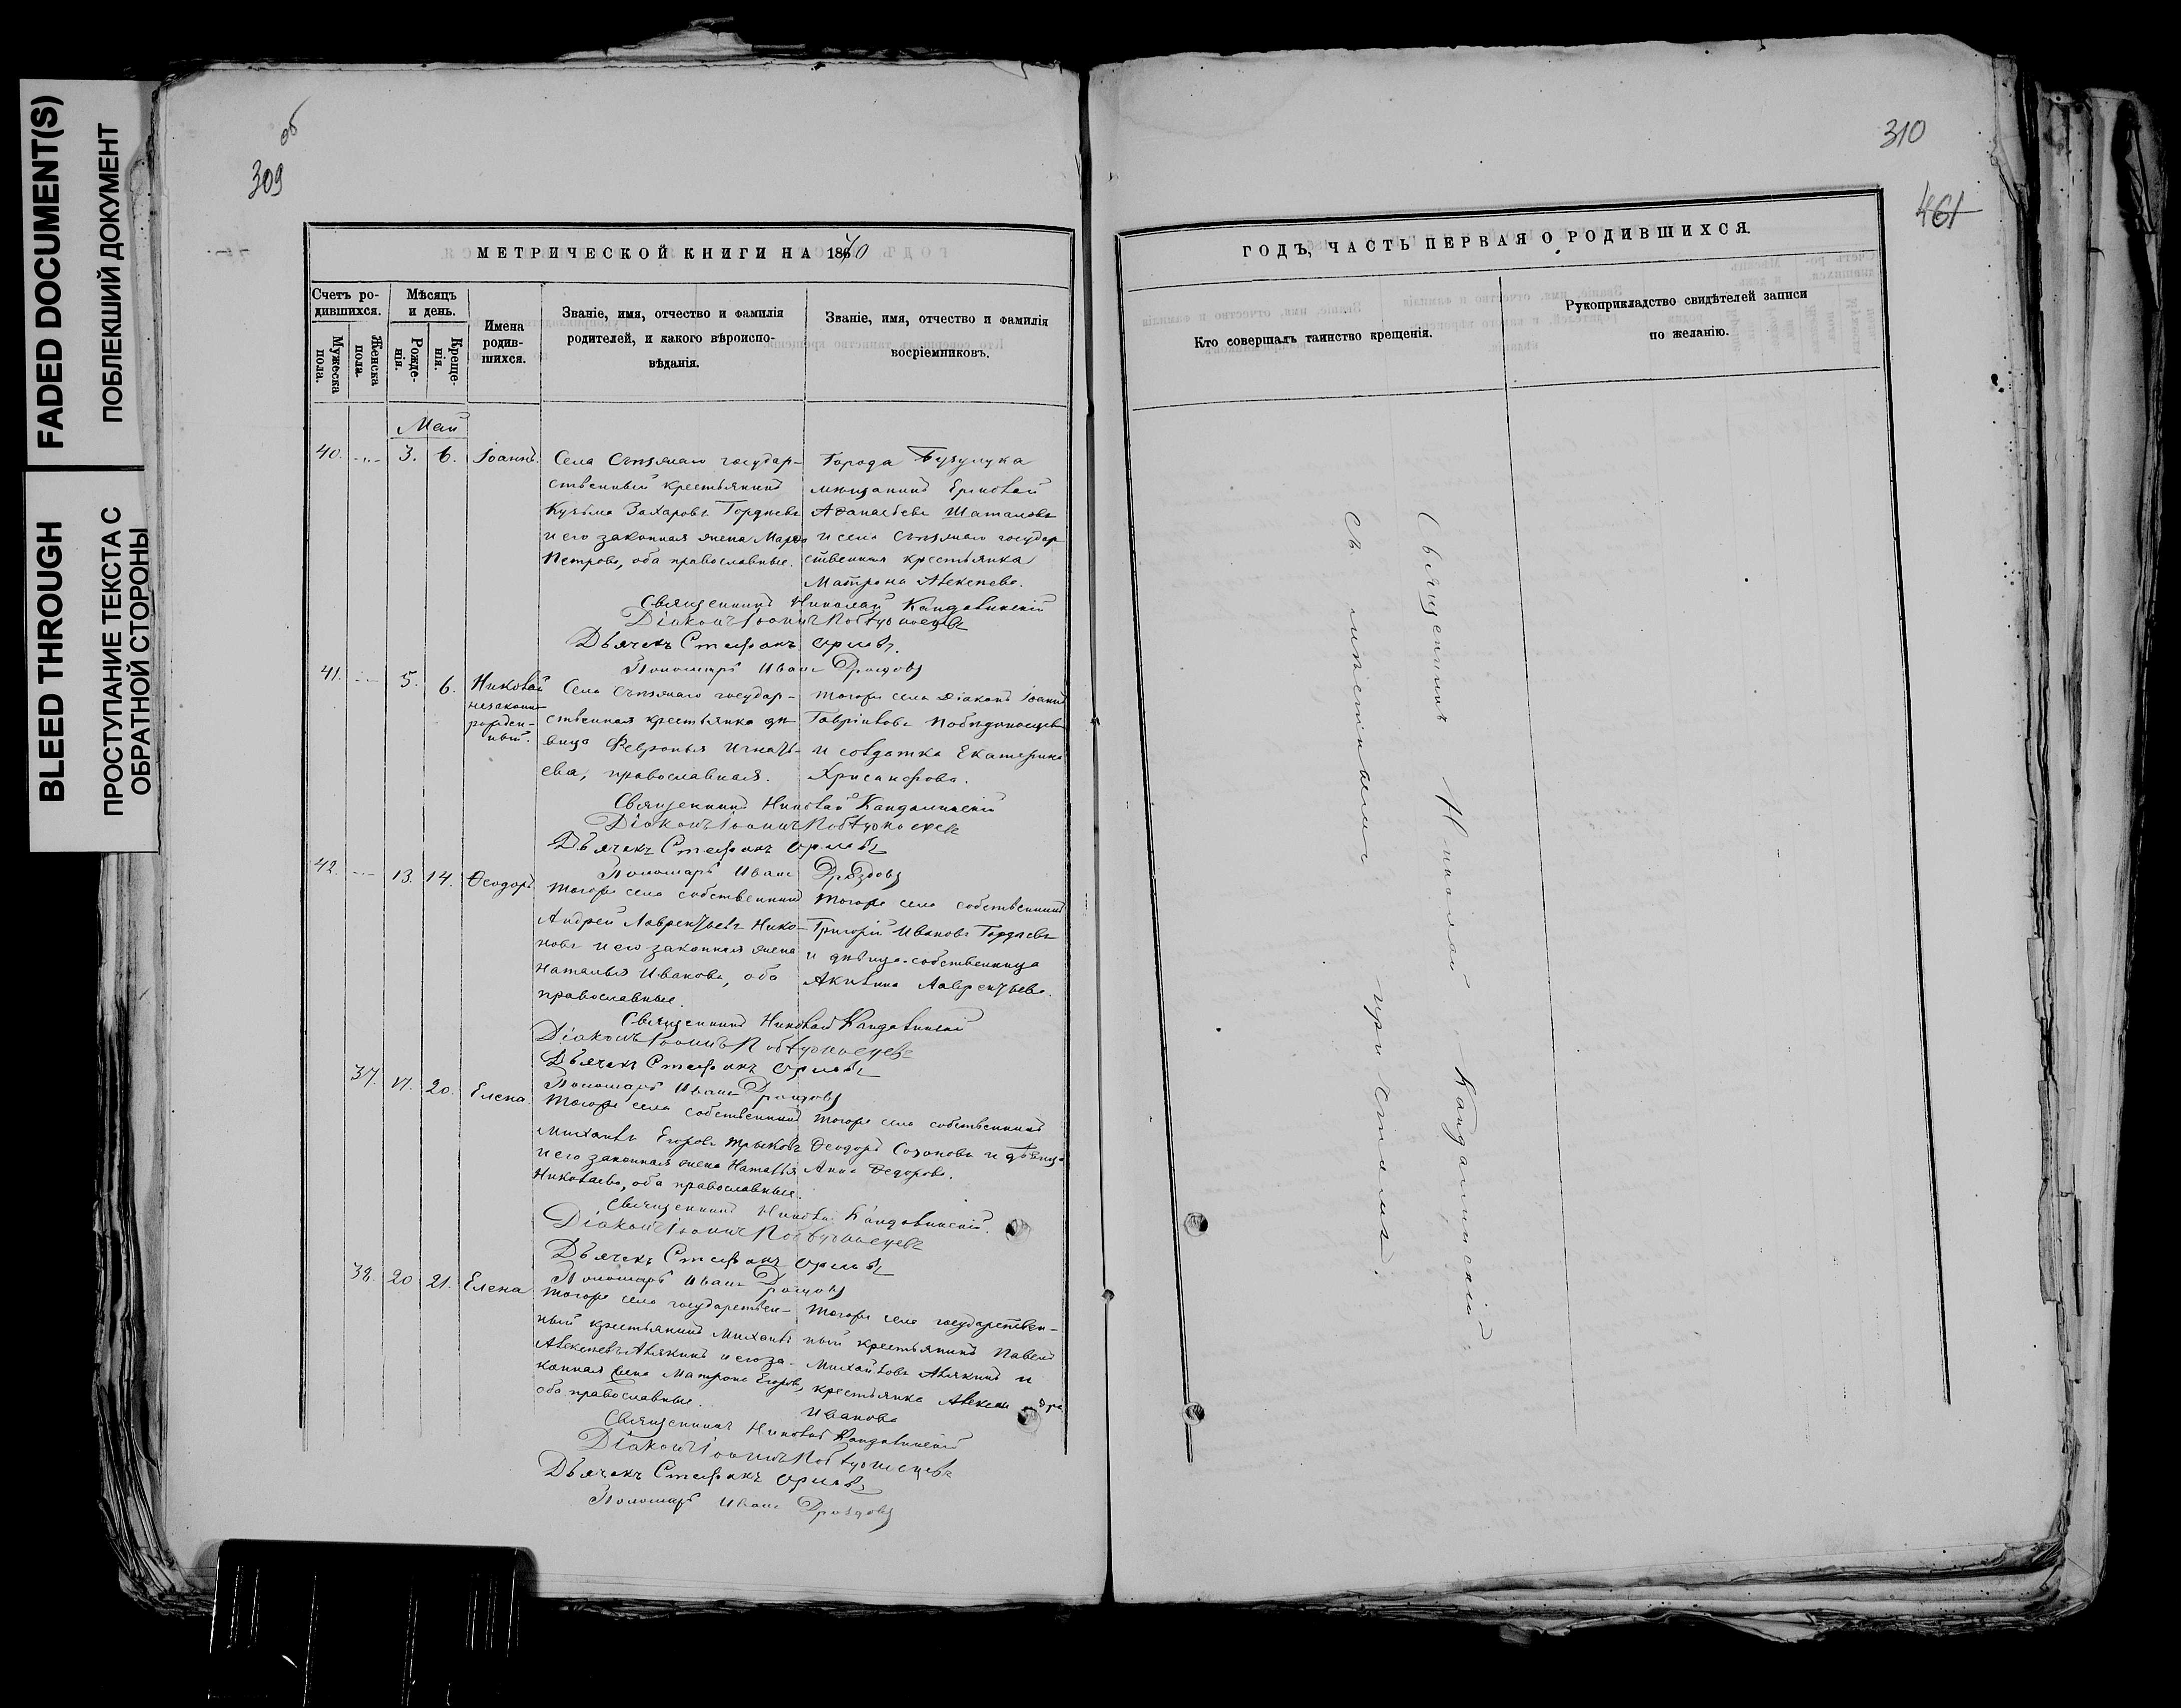 FADED DOCUMENT(S)
ПОБЛЕКШИЙ ДОКУМЕНТ
BLEED THROUGH
ПРОСТУПАНИЕ ТЕКСТА С
ОБРАТНОЙ СТОРОНЫ
об
309
МЕТРИЧЕСКОЙ КНИГИ НА 1870
Счетъ ро-
дившихся.
Мужеска
пола.
Женска
пола.
Мѣсяцъ
и день.
Рожде-
нія.
Креще-
нія.
Имена
родив-
шихся.
Званіе, имя, отчество и фамилія
родителей, и какого вѣроиспо-
вѣданія.
Званіе, имя, отчество и фамилія
воспріемниковъ.
Май
40. 3. 6. Іоаннъ.
Села Съѣзжаго государ-
ственный крестьянинъ
Кузьма Захаровъ Гордѣевъ
и его законная жена Марѳа
Петрова, оба православные.
Города Бузулука
мѣщанинъ
Шаталовъ
и села Съѣзжаго государ
ственная крестьянка
Матрона Алексѣева.
Священникъ Николай Кандалинскій
Діаконъ Іоаннъ Побѣдоносцевъ
Дьячекъ Стефанъ Орловъ
Пономарь Иванъ Дроздовъ
41. 5. 6. Николай
незаконно-
рожден-
ный.
Села Съѣзжаго государ-
ственная крестьянка дѣ-
вица Февронья Игнать-
ева, православная.
Тогоже села Діаконъ Іоаннъ
Гавріиловъ Побѣдоносцевъ
и солдатка Екатерина
Хрисанфова.
Священникъ Николай Кандалинскій
Діаконъ Іоаннъ Побѣдоносцевъ
Дьячекъ Стефанъ Орловъ
Пономарь Иванъ Дроздовъ
42. 13. 14. Ѳеодоръ
Тогоже села собственникъ
Андрей Лаврентьевъ Нико-
новъ и его законная жена
Наталья Иванова, оба
православные.
Тогоже села собственникъ
Григорій Ивановъ Гордѣевъ
и дѣвица-собственница
Акилина Лаврентьева.
Священникъ Николай Кандалинскій
Діаконъ Іоаннъ Побѣдоносцевъ
Дьячекъ Стефанъ Орловъ
Пономарь Иванъ Дроздовъ
37. 17. 20. Елена.
Тогоже села собственникъ
Михаилъ Егоровъ
и его законная жена Наталья
Николаева, оба православные.
Тогоже села собственникъ
Ѳеодоръ Созоновъ и дѣвица
Анна Ѳедорова.
Священникъ Николай Кандалинскій.
Діаконъ Іоаннъ Побѣдоносцевъ
Дьячекъ Стефанъ Орловъ
Пономарь Иванъ Дроздовъ
38. 20 21. Елена
Тогоже села государствен-
ный крестьянинъ Михаилъ
Алексѣевъ Алякинъ и его за-
конная жена Матрона Егорова,
оба православные.
Тогоже села государствен-
ный крестьянинъ Павелъ
Михайловъ Алякинъ и
крестьянка Александра
Иванова
Священникъ Николай Кандалинскій
Діаконъ Іоаннъ Побѣдоносцевъ
Дьячекъ Стефанъ Орловъ
Пономарь Иванъ Дроздовъ
310
461
ГОДЪ, ЧАСТЬ ПЕРВАЯ О РОДИВШИХСЯ.
Кто совершалъ таинство крещенія.
Рукоприкладство свидѣтелей записи
по желанію.
Священникъ Николай Кандалинскій
съ мѣстнымъ причтомъ.